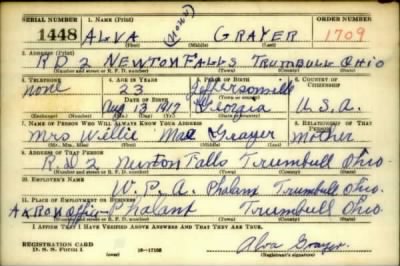 SERIAL NUMBER 1. NAME (Print) ORDER NUMBER
1448 ALVA (none) GRAYER 1709
(First) (Middle) (Last)
2. ADDRESS (Print)
R D 2 NEWTON FALLS TRUMBULL OHIO
(Number and street or R. F. D. number) (Town) (County) (State)
3. TELEPHONE 4. AGE IN YEARS 5. PLACE OF BIRTH 6. COUNTRY OF CITIZENSHIP
none 23 Jeffersonville
DATE OF BIRTH (Town or county)
Aug 13 1917 Georgia U.S.A.
(Mo.) (Day) (Yr.) (State or country)
7. NAME OF PERSON WHO WILL ALWAYS KNOW YOUR ADDRESS 8. RELATIONSHIP OF THAT PERSON
Mrs Willie Mae Grayer Mother
(Mr., Mrs., Miss) (First) (Middle) (Last)
9. ADDRESS OF THAT PERSON
R.D 2 Newton Falls Trumbull Ohio.
(Number and street or R. F. D. number) (Town) (County) (State)
10. EMPLOYER'S NAME
W. P. A. Phalanx Trumbull Ohio.
11. PLACE OF EMPLOYMENT OR BUSINESS
AKRON Office - Phalanx Trumbull Ohio.
(Number and street or R. F. D. number) (Town) (County) (State)
I AFFIRM THAT I HAVE VERIFIED ABOVE ANSWERS AND THAT THEY ARE TRUE.
REGISTRATION CARD
D. S. S. Form 1 16-17105 Alva Grayer
(Registrant's signature)